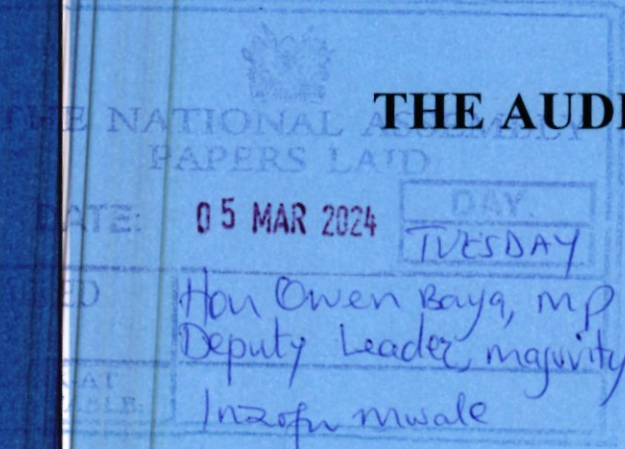 THE AUD
THE NATIONAL ASSEMBLY
PAPERS LAID
DATE: 05 MAR 2024
DAY.
TUESDAY
Hon Owen Baya, MP
Deputy Leader, majority
Inzofu Mwale